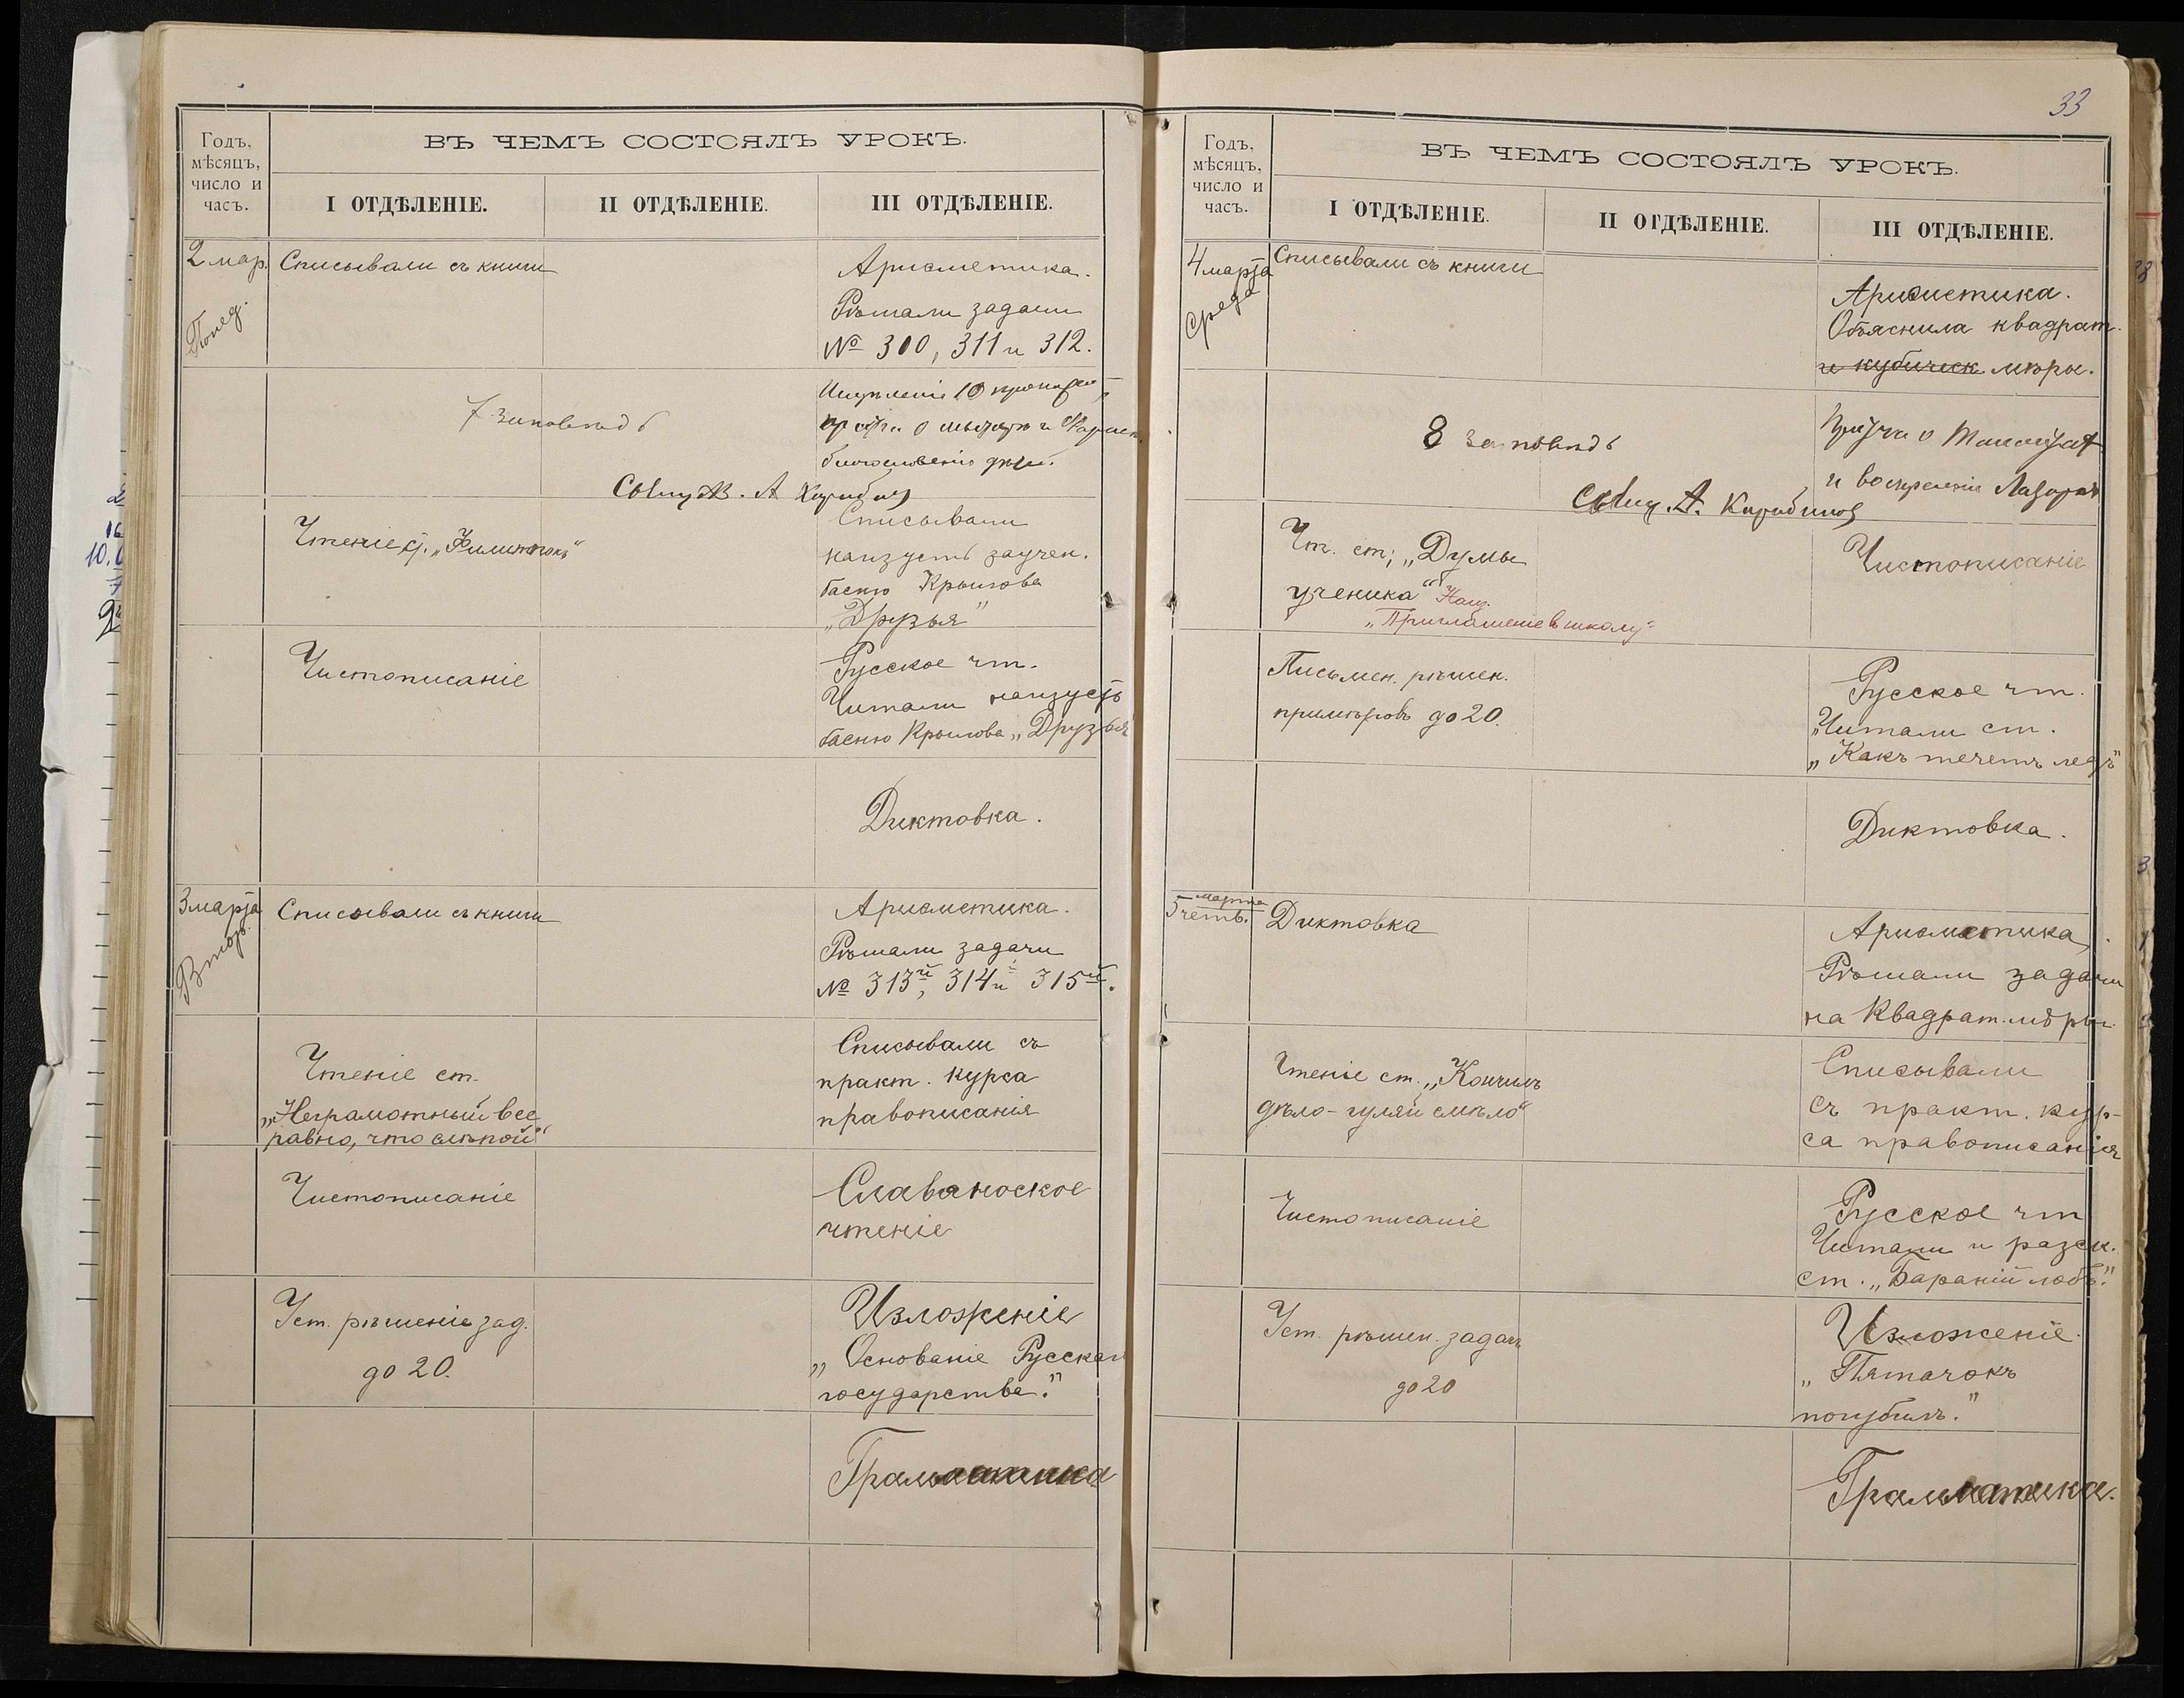 Годъ,
мѣсяцъ,
число и
часъ.
ВЪ ЧЕМЪ СОСТОЯЛЪ УРОКЪ.
I ОТДѢЛЕНІЕ.
II ОТДѢЛЕНІЕ.
III ОТДѢЛЕНІЕ.
2 мар.
Понед.
Списывали съ книги
Ариѳметика.
Рѣшали задачи
№ 310, 311 и 312.
7 заповѣдь
Исцѣленіе 10 прокаж.
пр о мытарѣ и Фарис.
благословеніе дѣтей.
Свящ. А
Чтеніе ст. „Филиппокъ“
Списывали
наизусть заучен.
басню Крылова
„Друзья“
Чистописаніе
Русское чт.
Читали наизусть
басню Крылова „Друзья
Диктовка.
3 марта
Втор.
Списывали съ книги
Ариѳметика.
Рѣшали задачи
№ 313й, 314 и 315й.
Чтеніе ст.
„Неграмотный все
равно, что слѣпой“
Списывали съ
практ. курса
правописанія
Чистописаніе
Славянское
чтеніе
Уст. рѣшеніе зад.
до 20.
Изложеніе
„Основаніе Русскаго
государства.“
Грамматика
33
Годъ,
мѣсяцъ,
число и
часъ.
ВЪ ЧЕМЪ СОСТОЯЛЪ УРОКЪ.
I ОТДѢЛЕНІЕ.
II ОТДѢЛЕНІЕ.
III ОТДѢЛЕНІЕ.
4 марта
Среда
Списывали съ книги
Ариѳметика.
Объяснила квадрат.
и кубическ. мѣры.
8 заповѣдь
Притчи о
и воскресеніе Лазаря
Свящ. А.
Чт. ст; „Думы
ученика“
„Приглашеніе в школу“
Чистописаніе
Письмен. рѣшен.
примѣровъ до 20.
Русское чт.
Читали ст.
„Какъ течетъ ледъ“
Диктовка.
5 марта
четв.
Диктовка
Ариѳметика.
Рѣшали задачи
на Квадрат. мѣры.
Чтеніе ст. „Кончилъ
дѣло - гуляй смѣло“
Списывали
съ практ. кур-
са правописанія
Чистописаніе
Русское чт
Читали и разск.
ст. „Бараній лобъ.“
Уст. рѣшен. задачъ
до 20
Изложеніе.
„Пятачокъ
погубилъ.“
Грамматика.